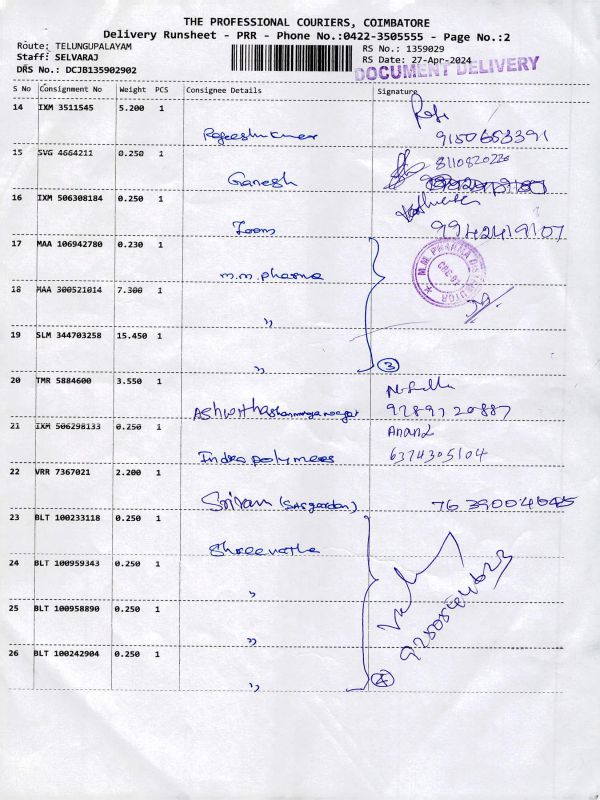 THE PROFESSIONAL COURIERS, COIMBATORE
Delivery Runsheet - PRR - Phone No.:0422-3505555 - Page No.:2
Route: TELUNGUPALAYAM
Staff: SELVARAJ
DRS No.: DCJB135902902
RS No.: 1359029
RS Date: 27-Apr-2024
DOCUMENT DELIVERY
S No Consignment No Weight PCS Consignee Details Signature
14 IXM 3511545 5.200 1
Rajeeshkumar 9150653391
15 SVG 4664211 0.250 1
8110820220
Ganesh
16 IXM 506308184 0.250 1
9942419107
17 MAA 106942780 0.230 1
M.M. PHARMA DISTRIBUTOR
CBE-97
m.m. pharma
18 MAA 300521014 7.300 1
"
19 SLM 344703258 15.450 1
" 3
20 TMR 5884600 3.550 1
9289720887
21 IXM 506298133 0.250 1
Anand
Indra polymers 6374305104
22 VRR 7367021 2.200 1
Sriram 7639004645
23 BLT 100233118 0.250 1
24 BLT 100959343 0.250 1
"
25 BLT 100958890 0.250 1
"
26 BLT 100242904 0.250 1
" 4